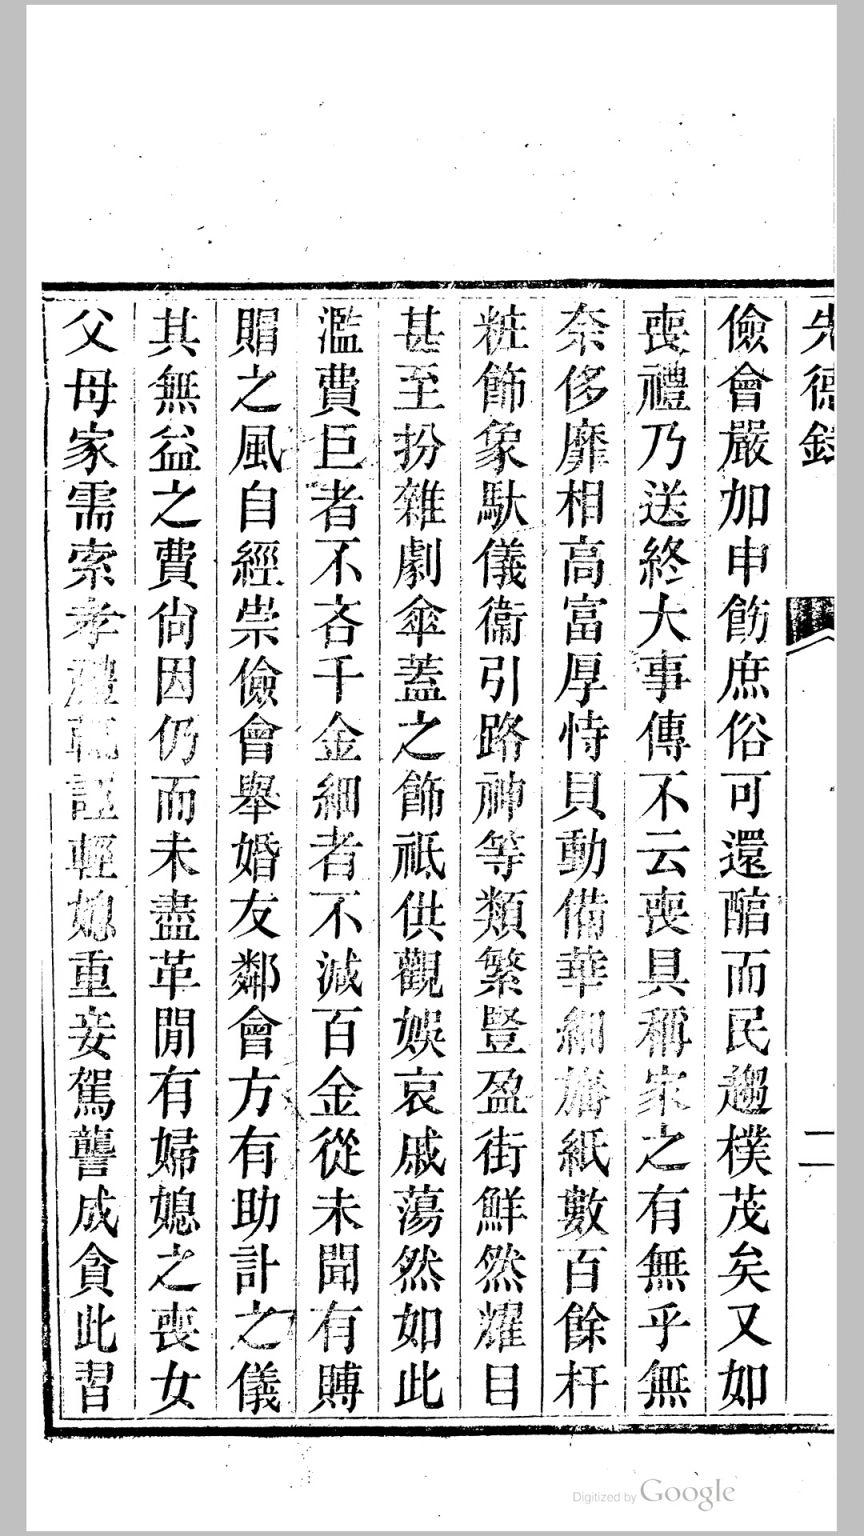 先德錄
二
儉會嚴加申飭庶俗可還醕而民趨樸茂矣又如
喪禮乃送終大事傳不云喪具稱家之有無乎無
奈侈靡相高富厚恃貝動備華細旛紙數百餘杆
粧飾象馱儀衞引路神等類繁豎盈街鮮然耀目
甚至扮雜劇傘蓋之飾祗供觀娛哀戚蕩然如此
濫費巨者不吝千金細者不減百金從未聞有賻
賵之風自經崇儉會舉婚友鄰會方有助計之儀
其無益之費尙因仍而未盡革閒有婦媳之喪女
父母家需索孝禮輒誣輕媳重妾駕讋成貪此習
Digitized by Google